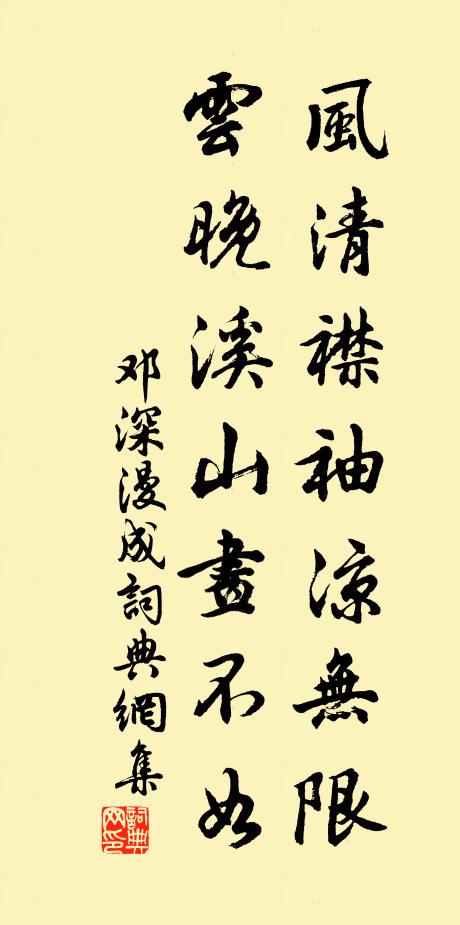 風清襟袖凉無限
雲晚溪山畫不如
邓深漫成詞典網集
詞典网印